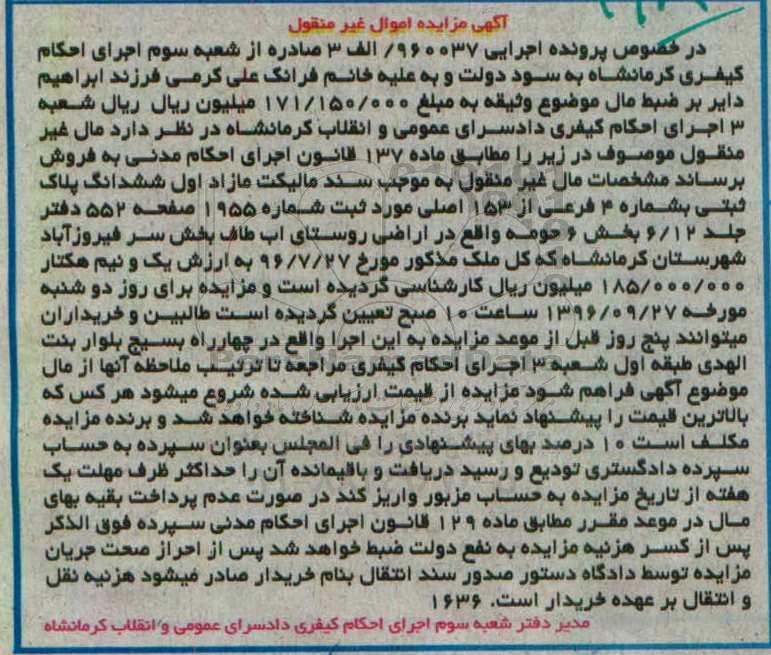 آگهی مزایده اموال غیر منقول
در خصوص پرونده اجرایی ۹۶۰۰۳۷/ الف ۳ صادره از شعبه سوم اجرای احکام
کیفری کرمانشاه به سود دولت و به علیه خانم فرانگ علی کرمی فرزند ابراهیم
دایر بر ضبط مال موضوع وثیقه به مبلغ ۱۷۱/۱۵۰/۰۰۰ میلیون ریال ریال شعبه
۳ اجرای احکام کیفری دادسرای عمومی و انقلاب کرمانشاه در نظر دارد مال غیر
منقول موصوف در زیر را مطابق ماده ۱۳۷ قانون اجرای احکام مدنی به فروش
برساند مشخصات مال غیر منقول به موجب سند مالیکت مازاد اول ششدانگ پلاک
ثبتی بشماره ۴ فرعی از ۱۵۳ اصلی مورد ثبت شماره ۱۹۵۵ صفحه ۵۵۲ دفتر
جلد ۶/۱۲ بخش ۶ حومه واقع در اراضی روستای اب طاف بخش سر فیروزآباد
شهرستان کرمانشاه که کل ملک مذکور مورخ ۹۶/۷/۲۷ به ارزش یک و نیم هکتار
۱۸۵/۰۰۰/۰۰۰ میلیون ریال کارشناسی گردیده است و مزایده برای روز دو شنبه
مورخه ۱۳۹۶/۰۹/۲۷ ساعت ۱۰ صبح تعیین گردیده است طالبین و خریداران
میتوانند پنج روز قبل از موعد مزایده به این اجرا واقع در چهارراه بسیج بلوار بنت
الهدی طبقه اول شعبه ۳ اجرای احکام کیفری مراجعه تا ترتیب ملاحظه آنها از مال
موضوع آگهی فراهم شود مزایده از قیمت ارزیابی شده شروع میشود هر کس که
بالاترین قیمت را پیشنهاد نماید برنده مزایده شناخته خواهد شد و برنده مزایده
مکلف است ۱۰ درصد بهای پیشنهادی را فی المجلس بعنوان سپرده به حساب
سپرده دادگستری تودیع و رسید دریافت و باقیمانده آن را حداکثر ظرف مهلت یک
هفته از تاریخ مزایده به حساب مزبور واریز کند در صورت عدم پرداخت بقیه بهای
مال در موعد مقرر مطابق ماده ۱۲۹ قانون اجرای احکام مدنی سپرده فوق الذکر
پس از کسر هزنیه مزایده به نفع دولت ضبط خواهد شد پس از احراز صحت جریان
مزایده توسط دادگاه دستور صدور سند انتقال بنام خریدار صادر میشود هزنیه نقل
و انتقال بر عهده خریدار است. ۱۶۳۶
مدیر دفتر شعبه سوم اجرای احکام کیفری دادسرای عمومی و انقلاب کرمانشاه